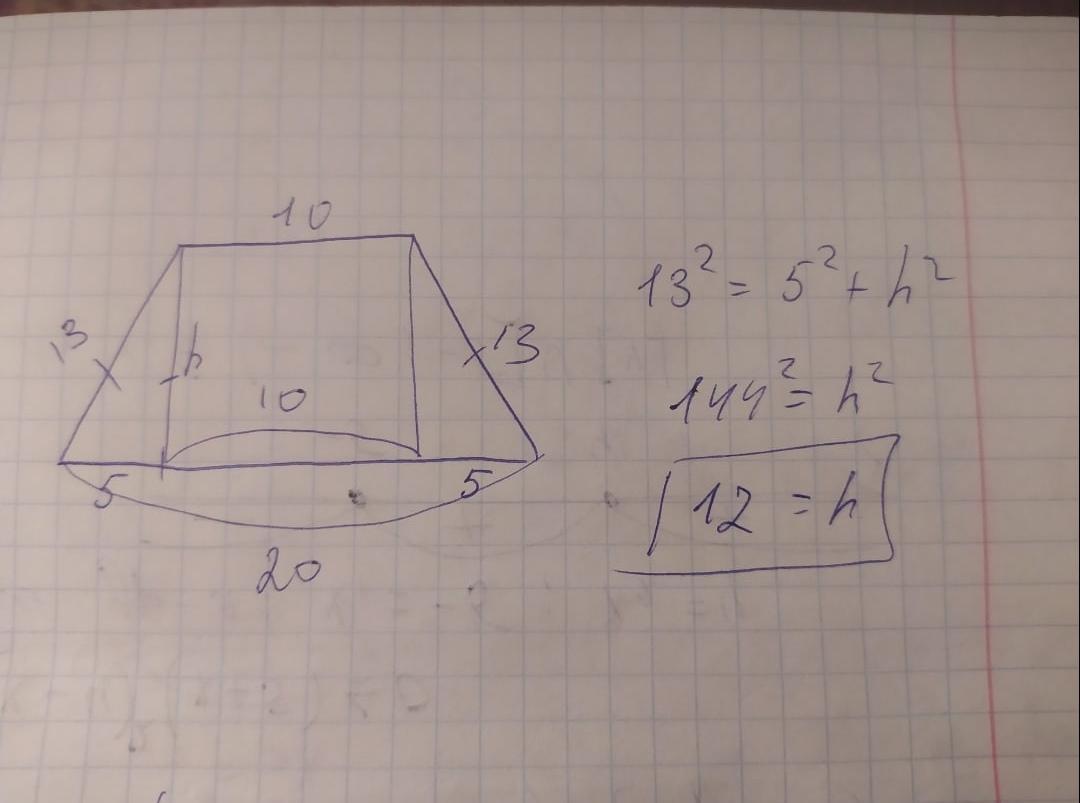 10
13
h
13
10
5
5
20
13² = 5² + h²
144² = h²
12 = h